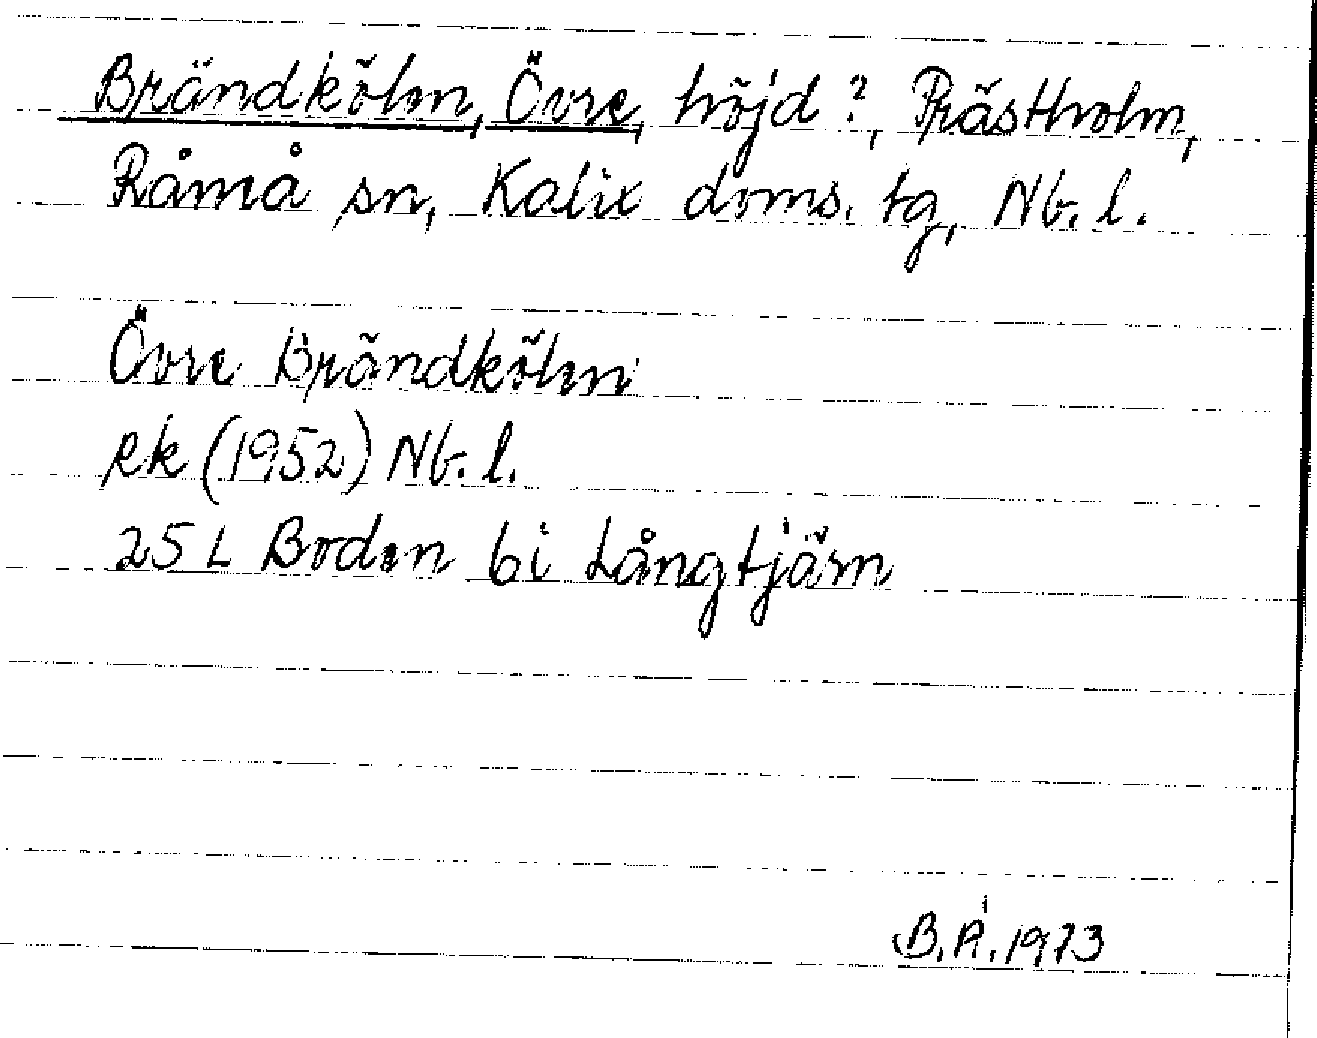 Brändkölen, Övre, höjd?, Prästholm,
Råneå sn, Kalix doms. tg, Nb. l.
Övre Brändkölen
Rk (1952) Nb. l.
25 L Boden bi Långtjärn
B.Å. 1973